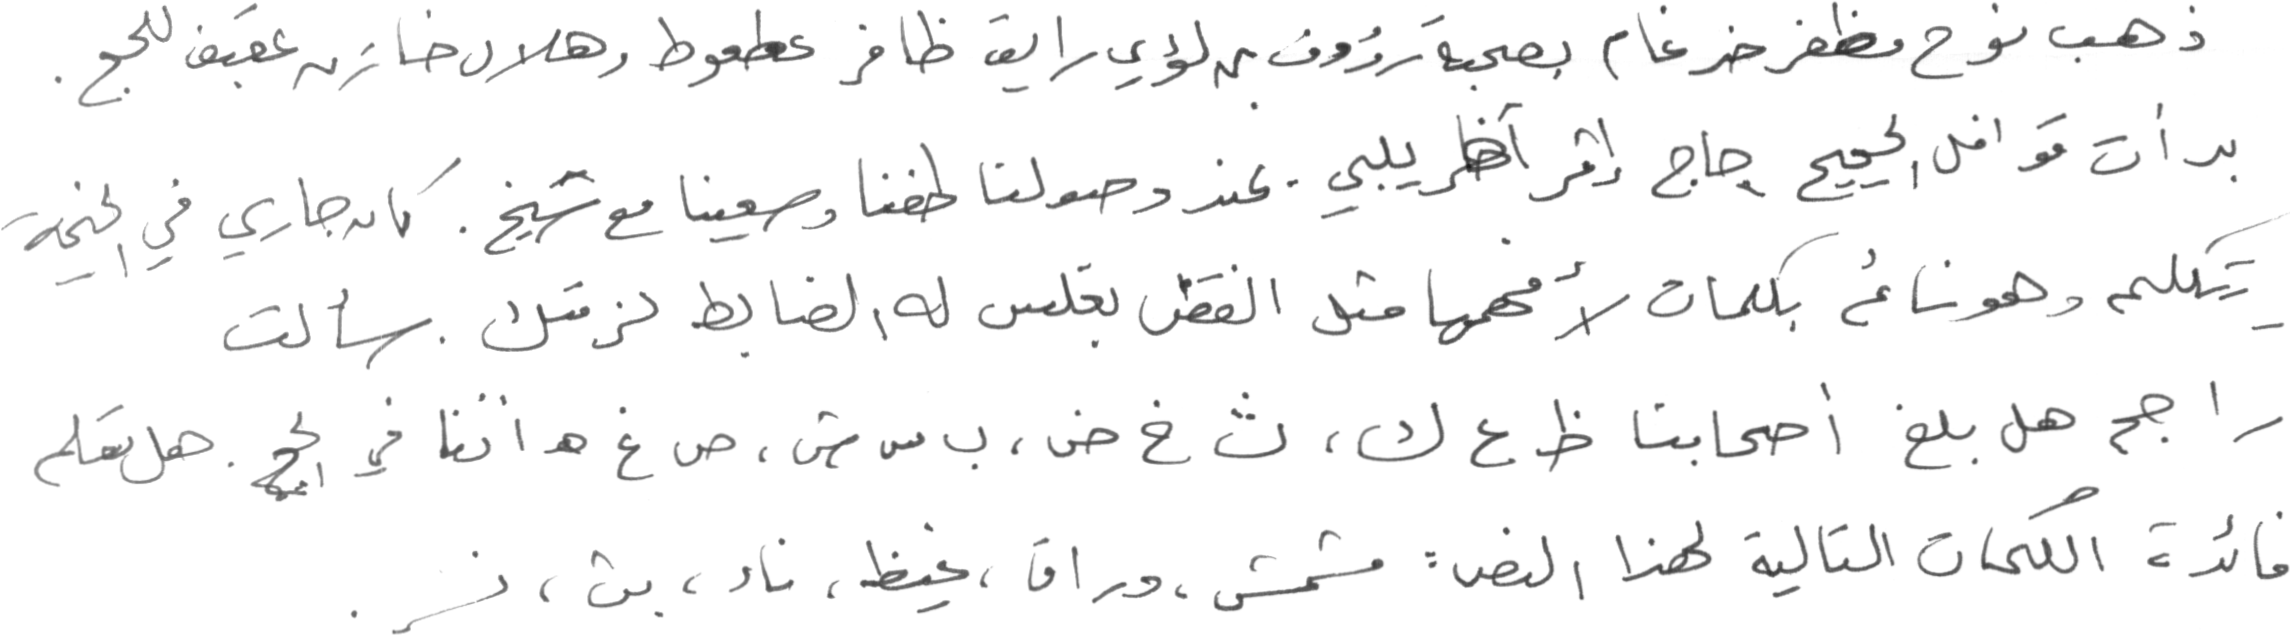 ذهب نوح مظفر ضرغام بصحبة رؤوف بن لؤي رايق ظافر عطعوط وهلال خازن عفيف للحج .
بدأت قوافل الحجيج حاج إثر آخر يلبي . عند وصولنا طفنا وسعينا مع شيخ . كان جاري في الخيمة
يتكلم وهو نائم بكلمات لا أفهمها مثل القفص بغلس له الضابط نزمتك . سألت
راجح هل بلغ أصحابنا ظ ع ك ، ث خ ض ، ب س ش ، ص غ ه أننا في الحج . هل تعلم
فائدة الكلمات التالية لهذا النص : مشمش ، وراقا ، غيظ ، ناد ، بث ، نز .